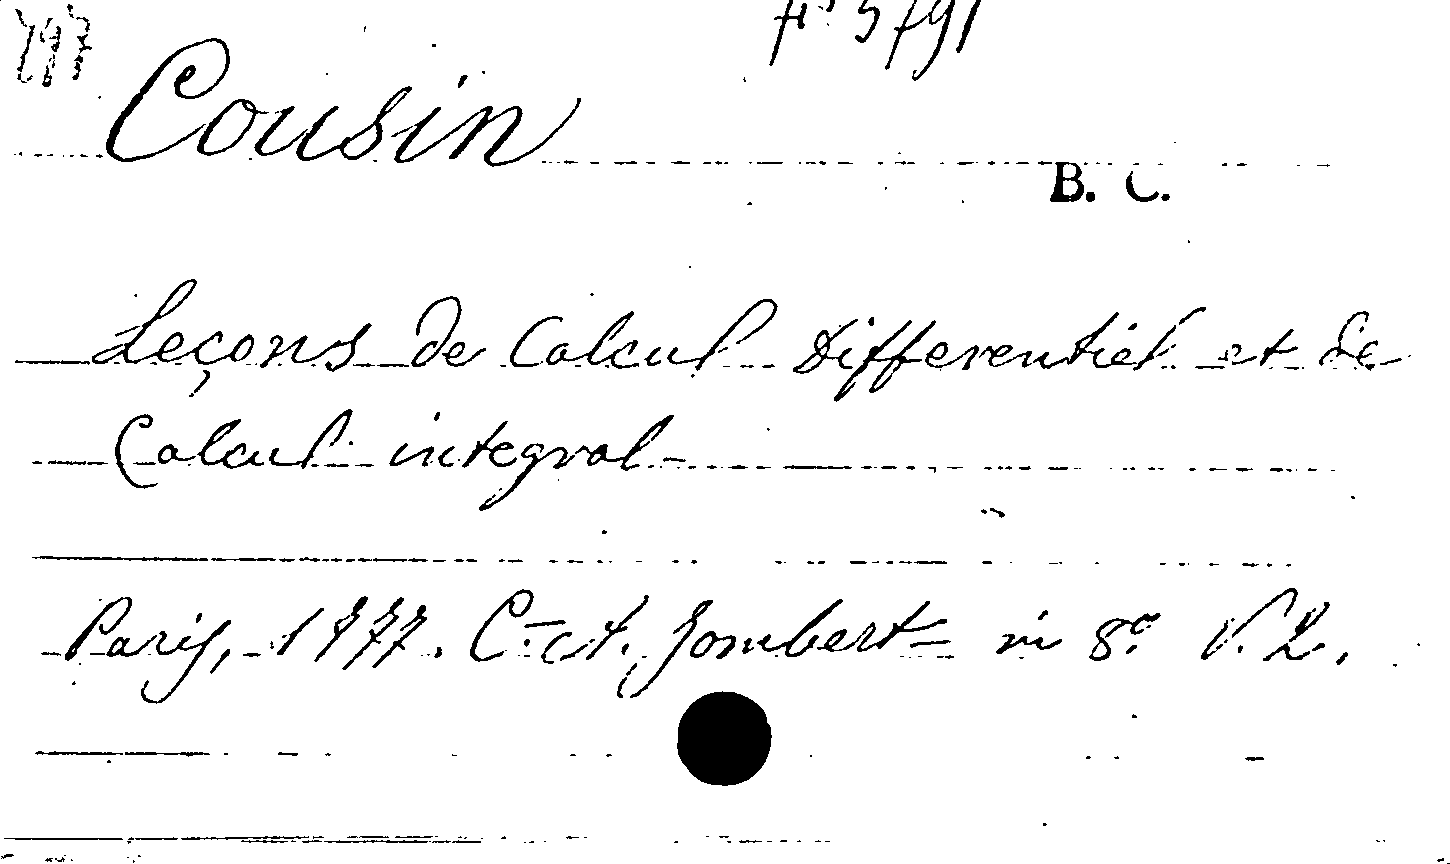 797
Cousin
B. C.
Leçons de Calcul Differentiel et de
Calcul integral
Paris, 1777. C. et. Jombert = in 8.º V. 2.